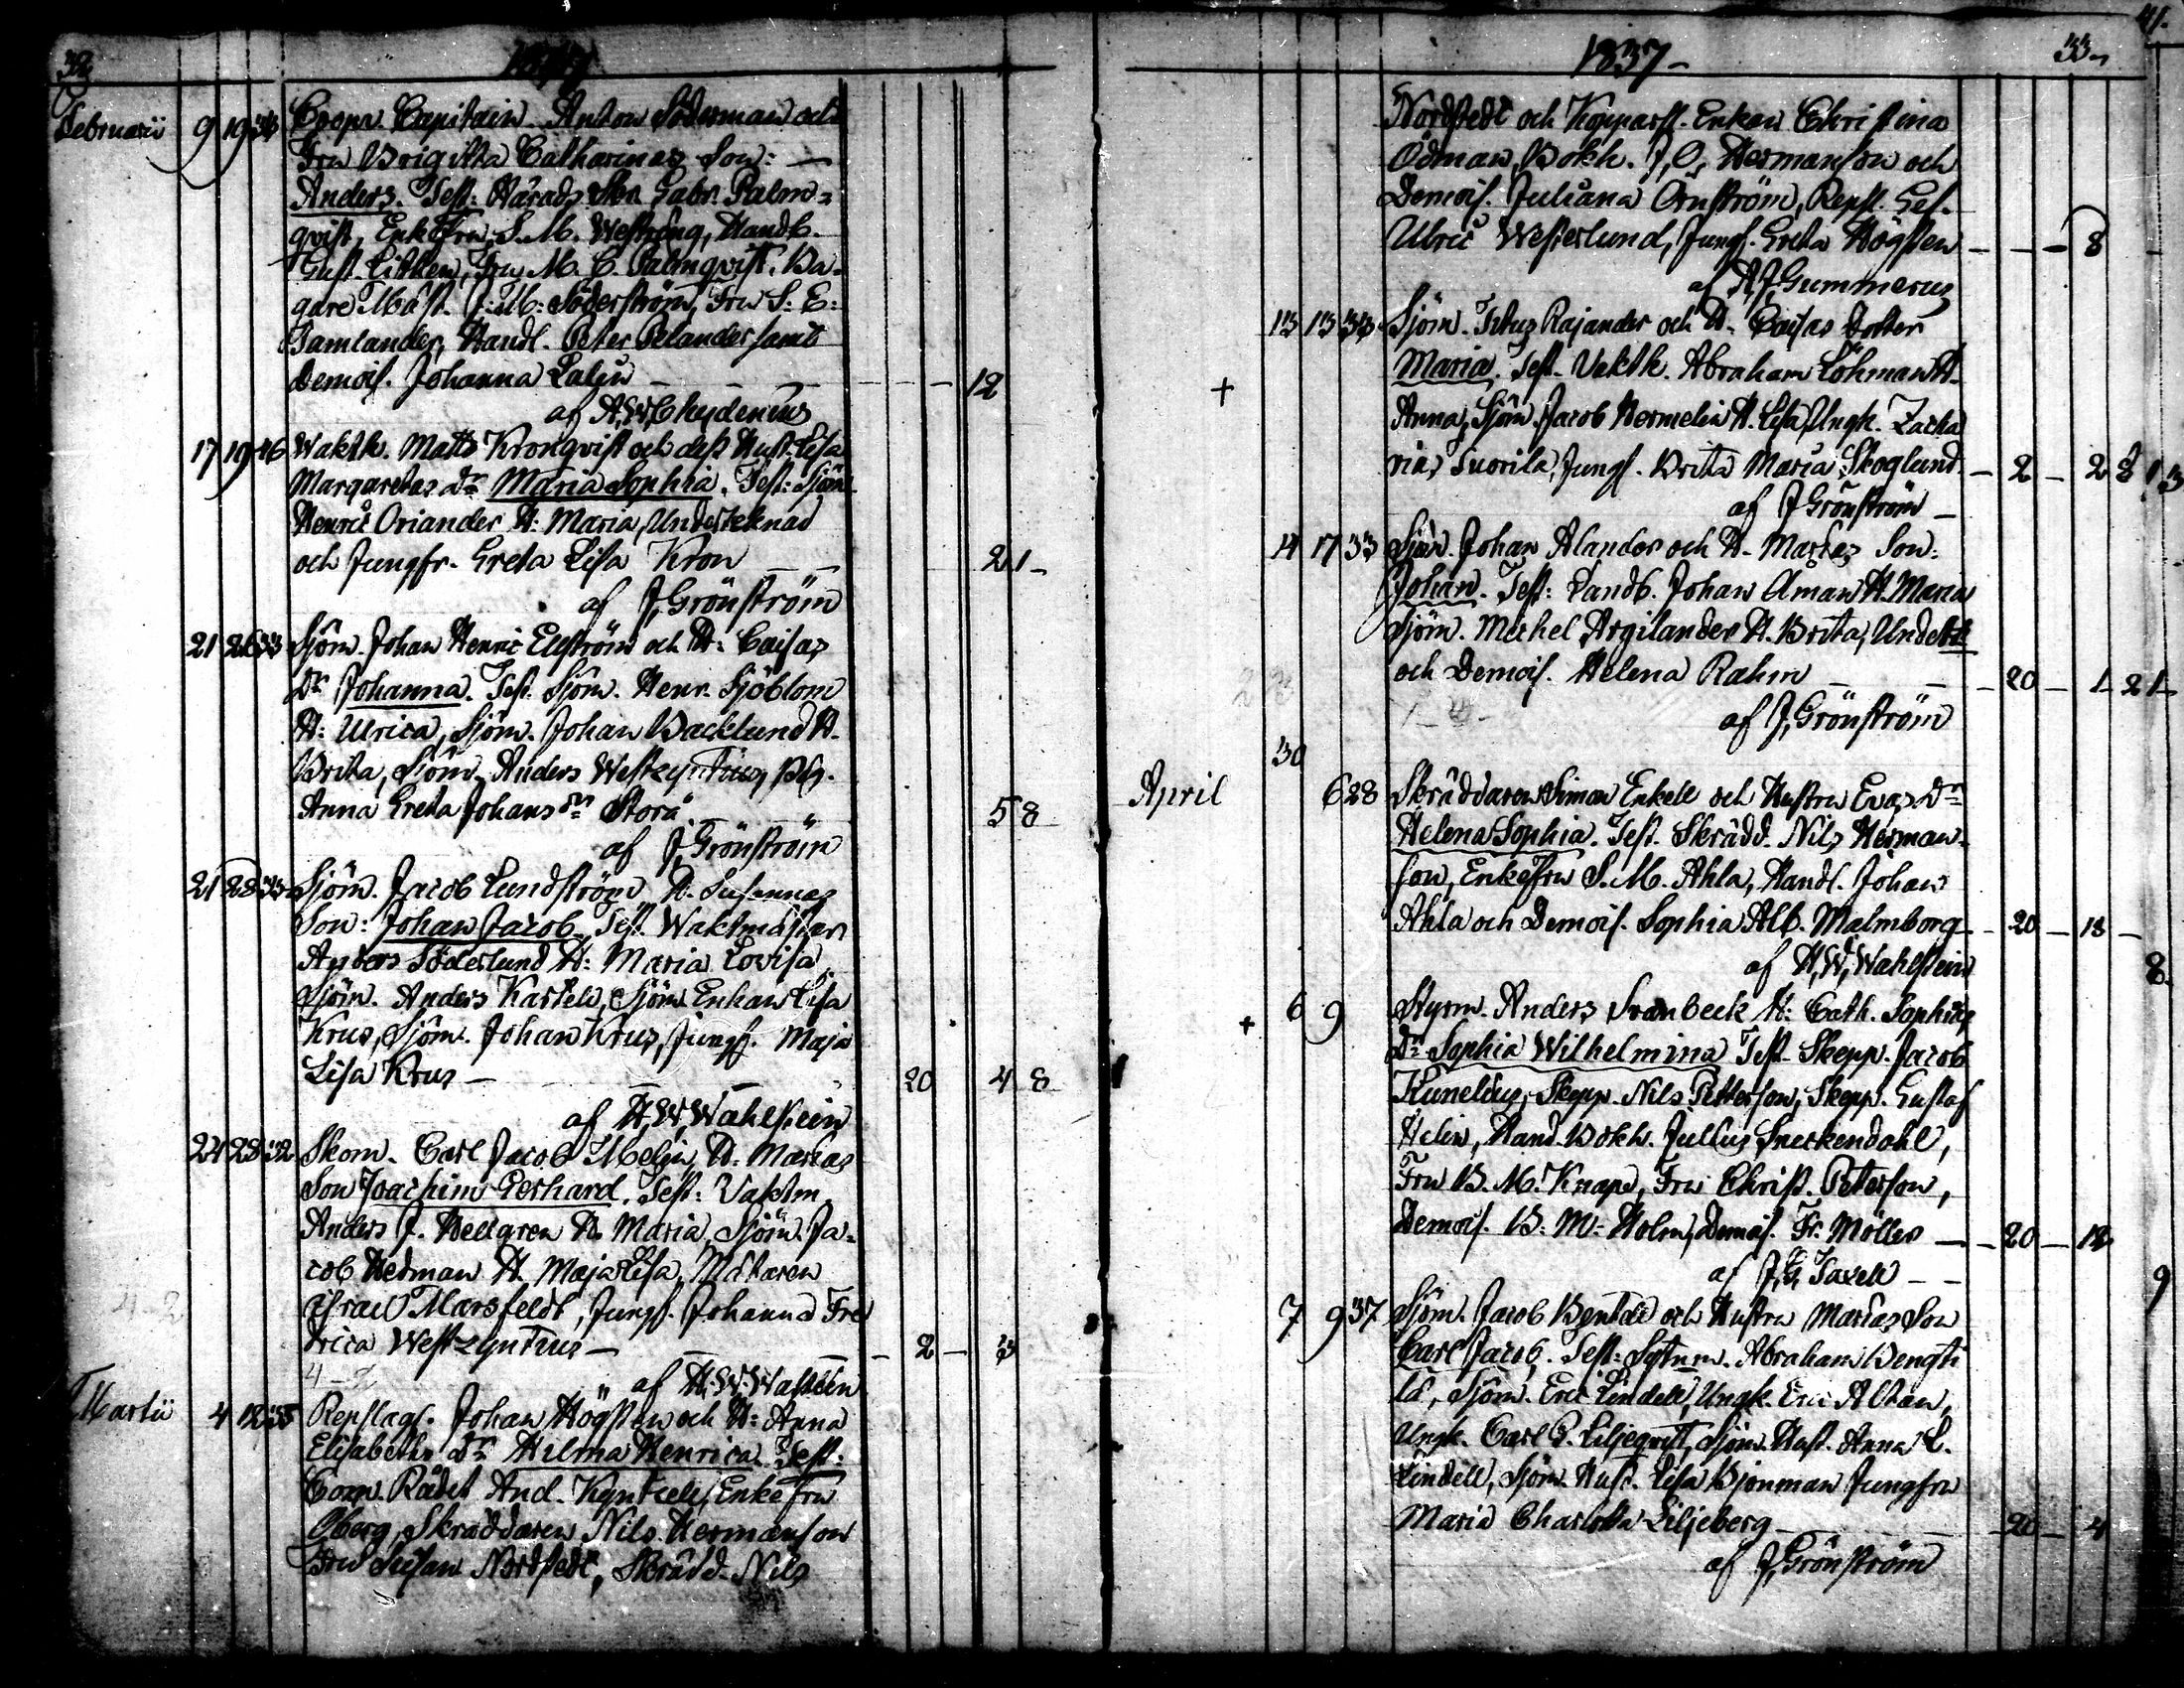 32
1837
Februarii 9 19 33 Coopv. Capitain Anton Söderman och
Fru Brigitta Catharinas Son:
Anders. Test: Härads Skr. Gabr. Palm=
qvist, EnkeFru S. M. Westring, Handl.
Gust. Lithen, Fru M. C. Palmqvist, Ba=
gare Mäst. J: M: Söderström, Fru S: E:
Jamlander, Handl. Peter Pelander samt
Demois. Johanna Lalin 12
af A, W, Chydenius
17 19 46 Waktk. Matts Kronqvist och dess Hust. Lisa
Margaretas Dr Maria Sophia. Test: Sjöm
Henric Oriander H: Maria, Underteknad
och Jungfr. Greta Lisa Kron 21
af J, Grönström
21 26 33 Sjöm. Johan Henric Elfström och H: Caisas
Dr Johanna. Test: Sjöm. Henr. Sjöblom
H: Ulrica, Sjöm. Johan Backlund H.
Brita, Sjöm. Anders Westzyntius, Pig.
Anna Greta Johans dr Storå 5 8
af J, Grönström
21 28 33 Sjöm. Jacob Lundström H. Susannas
Son: Johan Jacob. Test. Waktmästar.
Anders Söderlund H: Maria Lovisa
Sjöm. Anders Kartell, Sjöm. Enkan Lisa
Krus, Sjöm. Johan Krus, Jungf. Maja
Lisa Krus 20 4 8
af H, W, Wahlstein
24 28 32 Skom. Carl Jacob Melin, H: Marias
Son Joachim Gerhard. Test: Vaktm.
Anders J. Hellgren H. Maria, Sjöm. Ja=
cob Hedman H. Maja Lisa, Mätaren
Israel Marsfeldt, Jungf. Johanna Fre
drica Westzyntius 2 3
4-2
af H. W. Walstén
Martii 4 12 35 Repslag. Johan Högsten och H: Anna
Elisabeths Dr Hilma Henrica. Test:
Com. Rådet And. Kyntzell, Enke Fru
Öberg, Skräddaren Nils Hermanson
Fru Susan Nordstedt, Skrädd. Nils
41.
1837 33
Nordstedt och Kopparsl. Enkan Christina
Ödman, Bokh. J, O, Hermanson och
Demois. Juliana Örnström, Repsl. Ges.
Ulric Westerlund, Jungf. Greta Högsten 8
af A, J, Gummerus
13 13 33 Sjöm. Titus Rajander och H. Caisas Dotter
+ Maria. Test. Vaktk. Abraham Löhman H.
Anna, Sjöm. Jacob Hermelin H. Lisa, Ungk. Zacha
rias Tuorila, Jungf. Brita Maria Skoglund 2 2 8
af J Grönström
14 17 33 Sjöm. Johan Alander och H. Marias Son:
Johan. Test: Landb. Johan Åman H. Maria
Sjöm. Michel Argilander H. Brita, Undert.
och Demois. Helena Rahm 20 1 21
af J, Grönström
30
April 6 28 Skräddaren Simon Enkell och Hustru Evas Dr
Helena Sophia. Test. Skrädd. Nils Herman=
son, EnkeFru S. M. Ahla, Handl. Johan
Ahla och Demois. Sophia Alb. Malmborg 20 18
af H, W, Wahlstein
+ 6 9 Styrm. Anders Svanbeck H: Cath. Sophias
Dr Sophia Wilhelmina Test. Skepp. Jacob
Kunelius, Skepp. Nils Petterson, Skepp. Gustaf
Helin, Hand. Bokh. Jullius Sneckendahl,
Fru B. M. Knape, Fru Christ. Peterson,
Demois. B: M: Holm, Demois. Fr. Möller 20 12
af J, G, Taxell
7 9 37 Sjöm. Jacob Byndal och Hustru Marias Son
Carl Jacob. Test: Styrm. Abraham Bengts
ld, Sjöm. Eric Lindell, Ungk. Eric Altan,
Ungk. Carl G. Liljeqvist, Sjöm. Hust. Anna L.
Lindell, Sjöm. Hust. Lisa Björnman Jungfru
Maria Charlotta Liljeberg 20 4
af J, Grönström